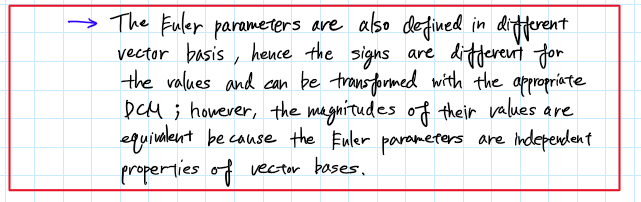 → The Euler parameters are also defined in different
vector basis, hence the signs are different for
the values and can be transformed with the appropriate
DCM ; however, the magnitudes of their values are
equivalent because the Euler parameters are independent
properties of vector bases.